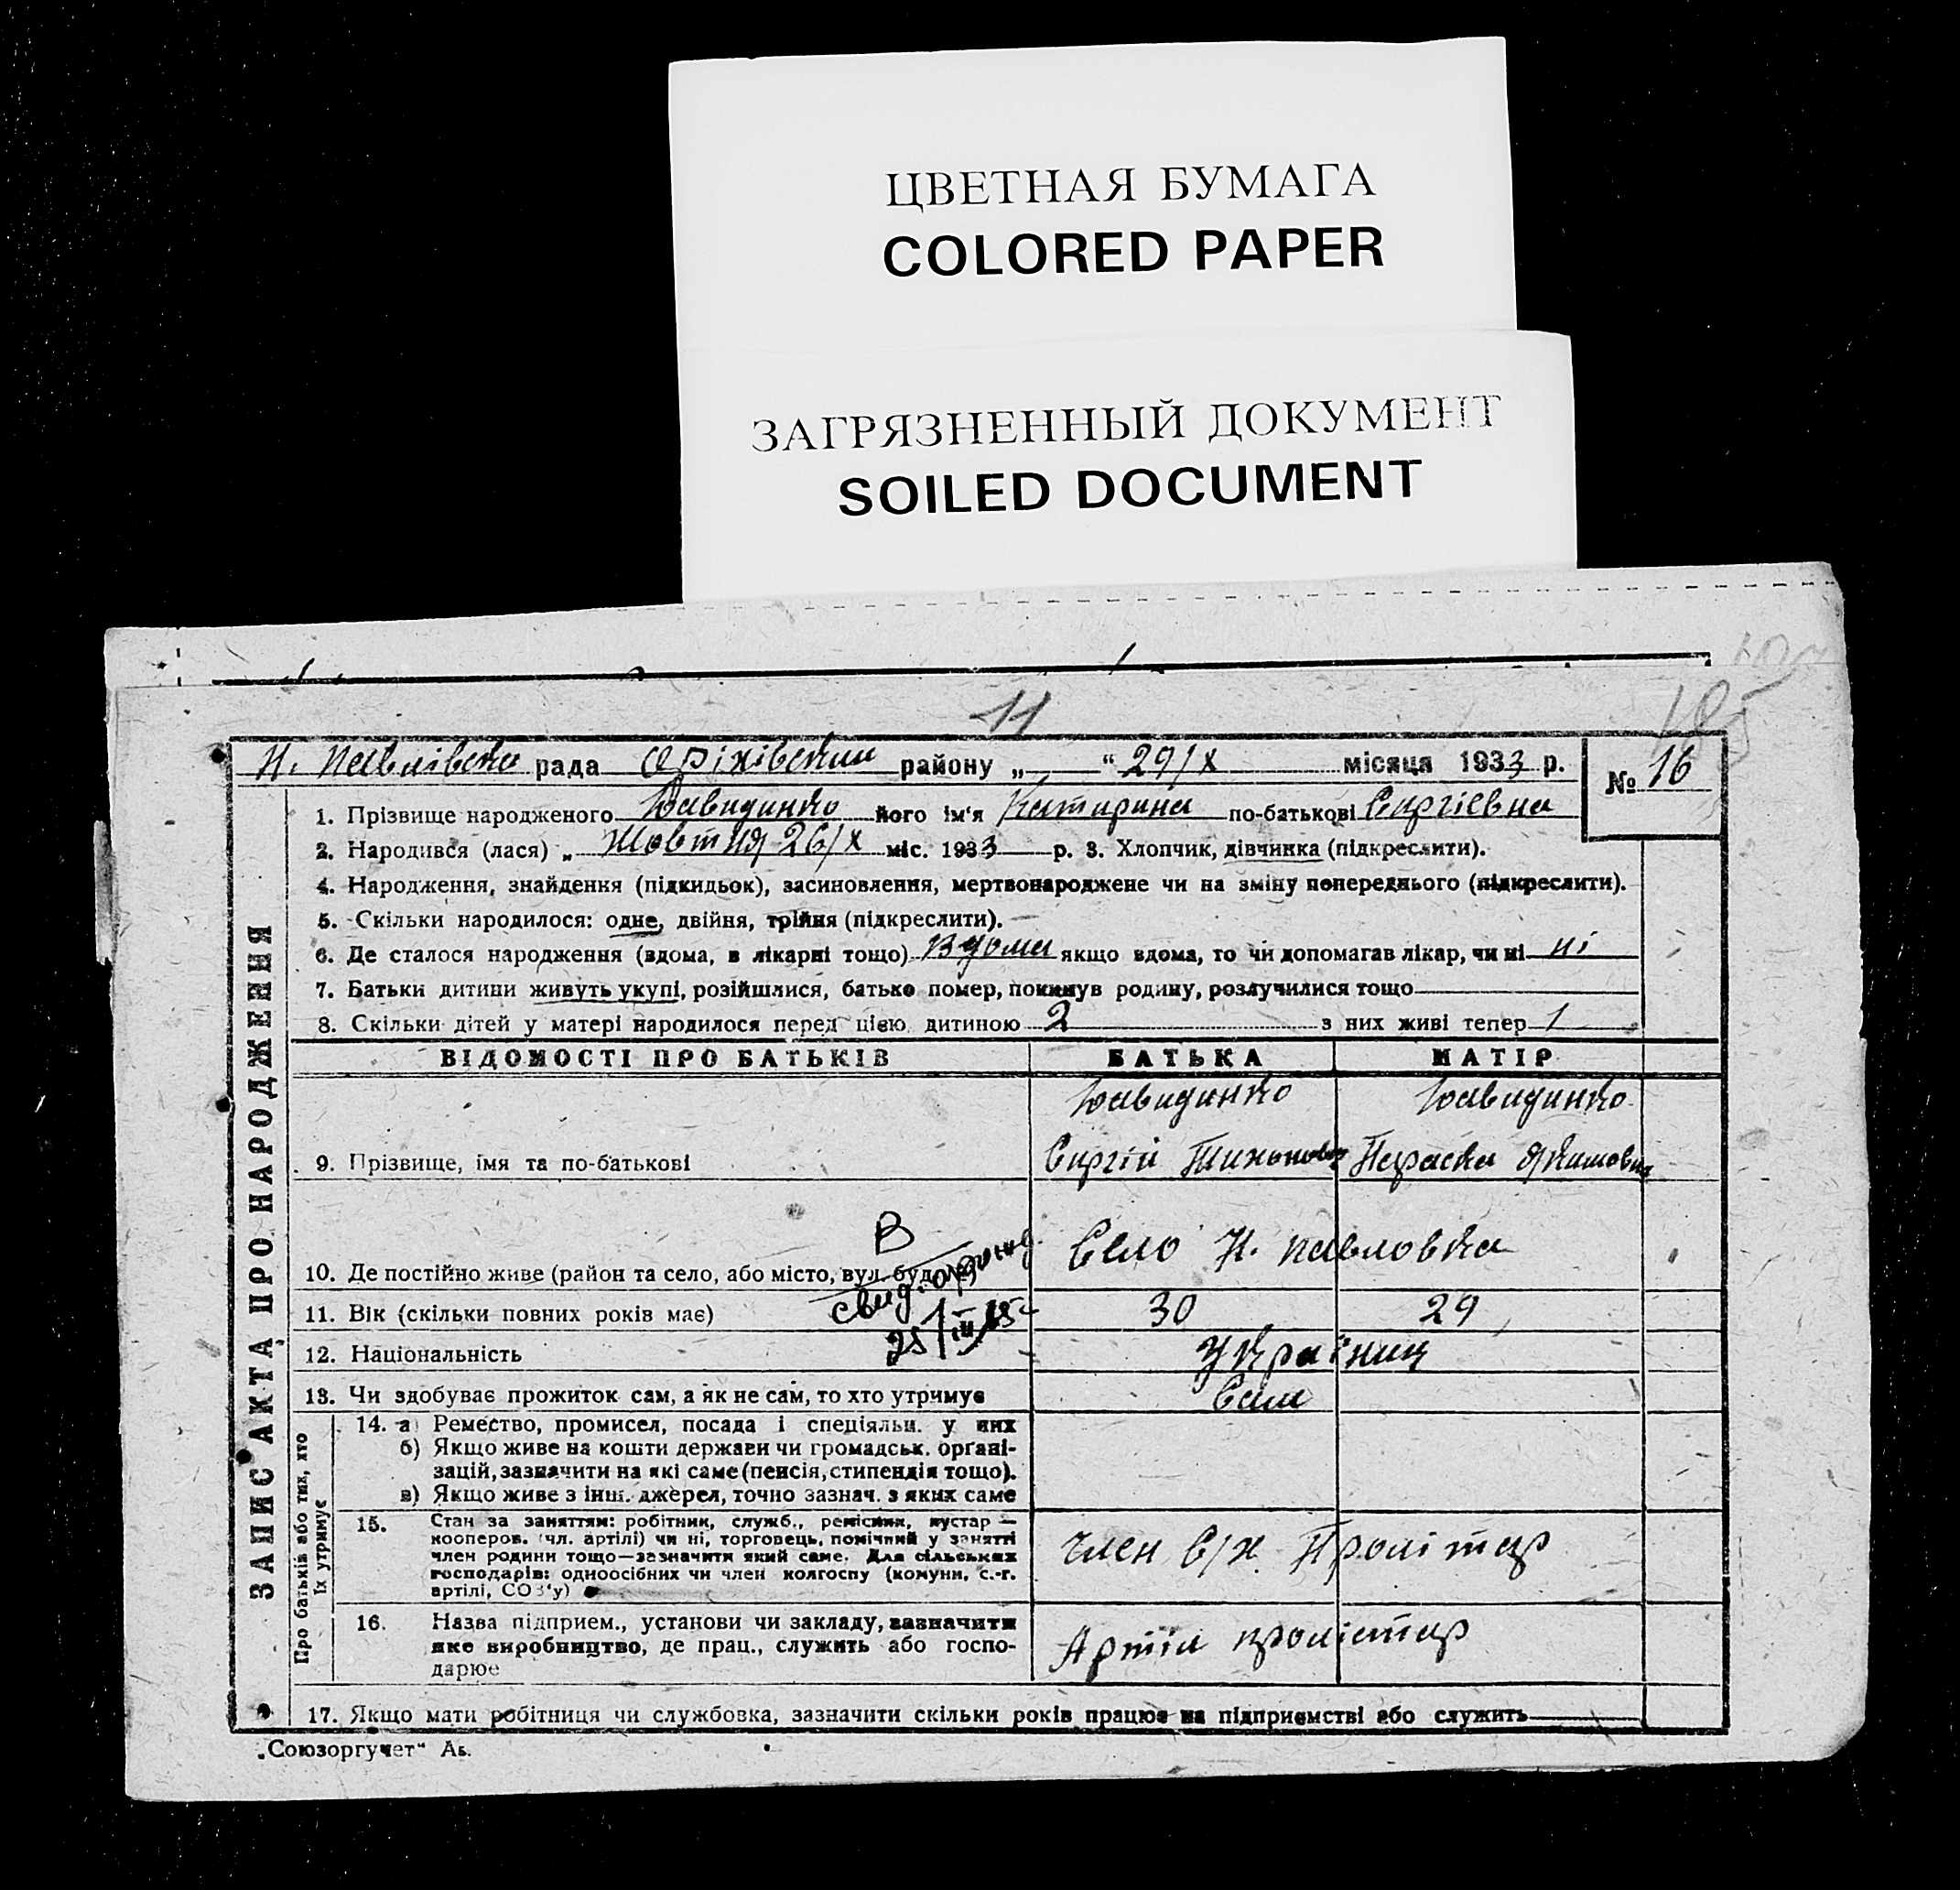 ЦВЕТНАЯ БУМАГА
COLORED PAPER
ЗАГРЯЗНЕННЫЙ ДОКУМЕНТ
SOILED DOCUMENT
11
185
Н. Павлівська рада Оріхівский району „ “ 29/X місяця 1933 р.
№ 16
ЗАПИС АКТА ПРО НАРОДЖЕННЯ
1. Прізвище народженого Давиденко його ім'я Катирина по-батькові Сиргієвна
2. Народився (лася) „ Жовтня 26/X міс. 1933 р. 3. Хлопчик, дівчинка (підкреслити).
4. Народження, знайдення (підкидьок), засиновлення, мертвонароджене чи на зміну попереднього (підкреслити).
5. Скільки народилося: одне, двійня, трійня (підкреслити).
6. Де сталося народження (вдома, в лікарні тощо) Вдома якщо вдома, то чи допомагав лікар, чи ні ні
7. Батьки дитини живуть укупі, розійшлися, батько помер, покинув родину, розлучилися тощо
8. Скільки дітей у матері народилося перед цією дитиною 2 з них живі тепер 1
ВІДОМОСТІ ПРО БАТЬКІВ БАТЬКА МАТІР
Давидинко Давидинко
9. Прізвище, імя та по-батькові Сиргій Тихонович Параска Якимовна
В
10. Де постійно живе (район та село, або місто, вул. буд. Село Н. павловка
11. Вік (скільки повних років має) 30 29
12. Національність Українц
13. Чи здобуває прожиток сам, а як не сам, то хто утримує Сам
Про батьків або тих, хто
їх утримує
14. а) Ремество, промисел, посада і спеціяльн. у них
б) Якщо живе на кошти держави чи громадськ. органі-
зацій, зазначити на які саме (пенсія, стипендія тощо).
в) Якщо живе з інш. джерел, точно зазнач. з яких саме
15. Стан за заняттям: робітник, служб., ремісник, кустар —
кооперов. (чл. артілі) чи ні, торговець, помічний у занятті
член родини тощо—зазначити який саме. Для сільських
господарів: одноосібник чи член колгоспу (комуни, с.-г.
артілі, СОЗ'у)
член С/х Пролітар
16. Назва підприєм., установи чи закладу, зазначити
яке виробництво, де прац., служить або госпо-
дарює
Артіл пролітар
17. Якщо мати робітниця чи службовка, зазначити скільки років працює на підприємстві або служить
„Союзоргучет“